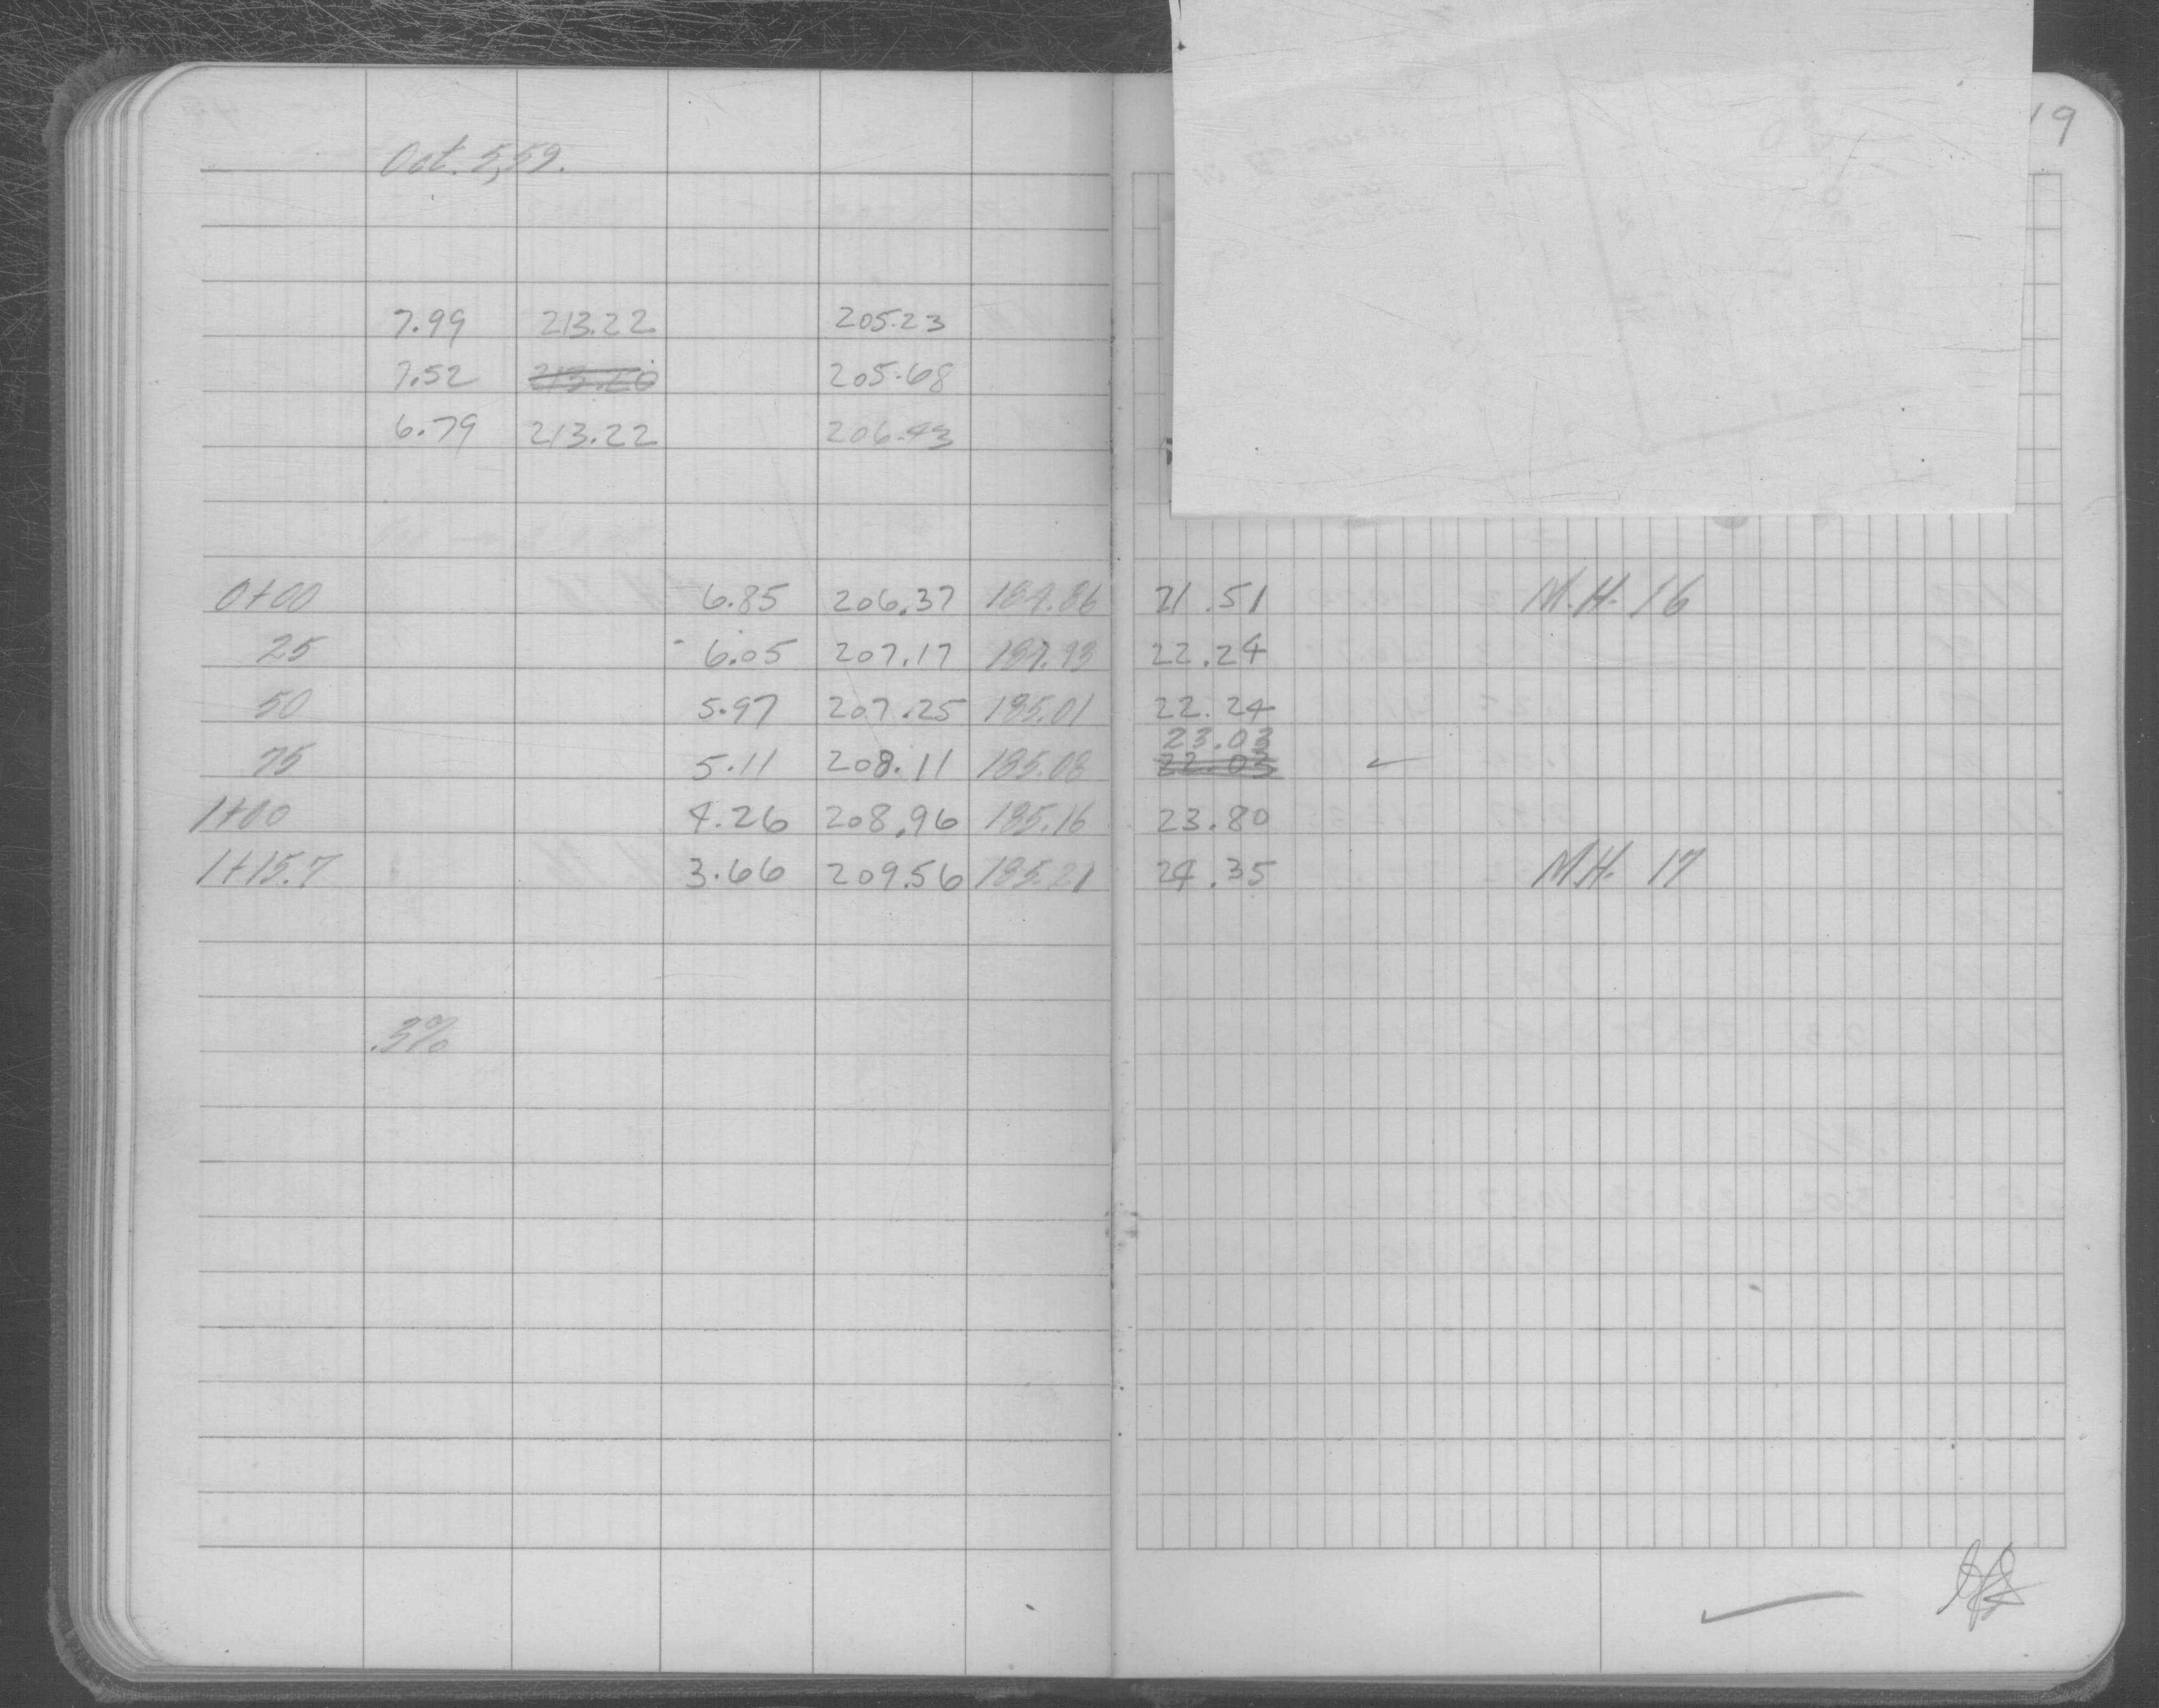 19
Oct. 5, 59.
7.99 213.22 205.23
7.52 213.20 205.68
6.79 213.22 206.43
0+00 6.85 206.37 184.86 21.51 M.H. 16
25 6.05 207.17 184.93 22.24
50 5.97 207.25 185.01 22.24
23.03
75 5.11 208.11 185.08 22.03
1+00 4.26 208.96 185.16 23.80
1+15.7 3.66 209.56 185.21 24.35 M.H. 17
.3%